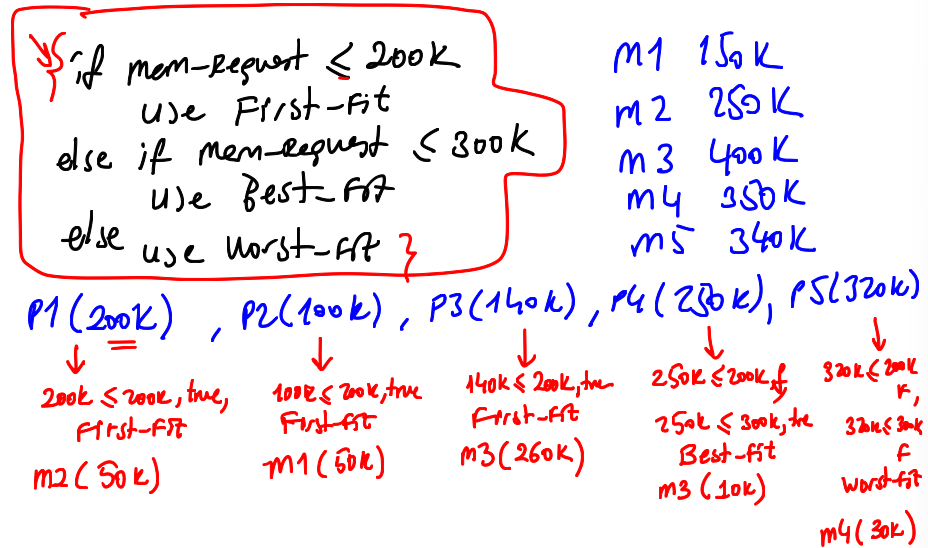 if mem-Request ≤ 200K
use First-Fit
else if mem-Request ≤ 300K
use Best-Fit
else use Worst-Fit }
m1 150K
m2 250K
m3 400K
m4 350K
m5 340K
P1(200K) , P2(100K), P3(140K), P4(250K), P5(320K)
200K ≤ 200K, true,
First-Fit
m2(50K)
100K ≤ 200K, true
First-Fit
m1(50K)
140K ≤ 200K, true
First-Fit
m3(260K)
250K ≤ 200K, f
250K ≤ 300K, true
Best-Fit
m3(10K)
320K ≤ 200K
F,
320K ≤ 300K
F
Worst-Fit
m4(30K)